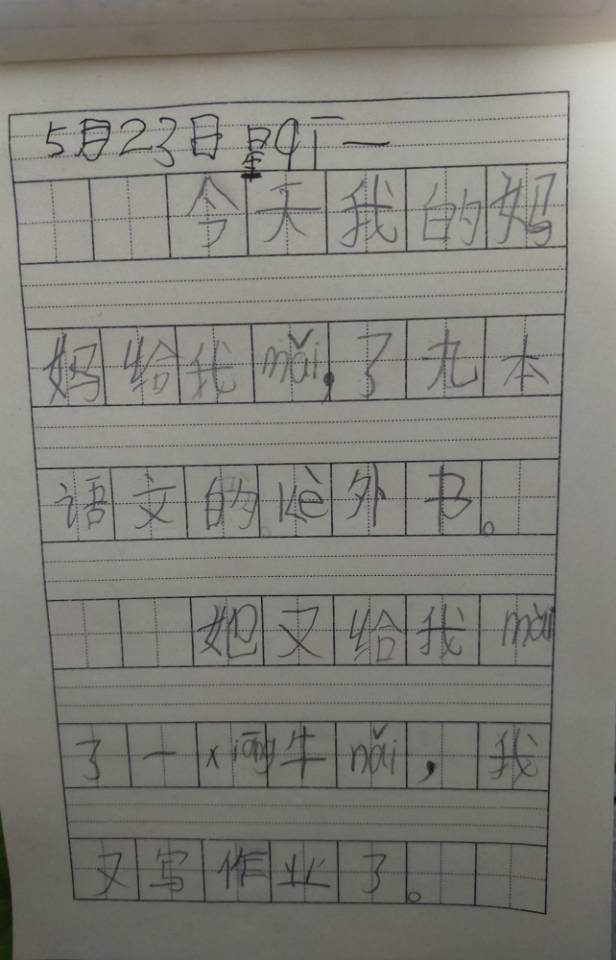 5月23日星qī一
今天我的妈
妈给我mǎi,了九本
语文的kè外书。
她又给我mǎi
了一xiāng牛nǎi,我
又写作业了。